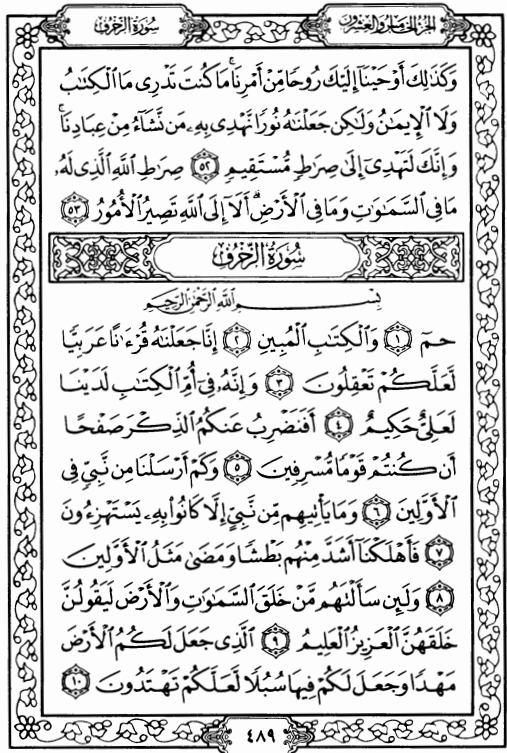 الجزء الخامس والعشرون
سورة الزخرف
وَكَذَٰلِكَ أَوْحَيْنَآ إِلَيْكَ رُوحًا مِّنْ أَمْرِنَا ۚ مَا كُنتَ تَدْرِى مَا ٱلْكِتَـٰبُ
وَلَا ٱلْإِيمَـٰنُ وَلَـٰكِن جَعَلْنَـٰهُ نُورًا نَّهْدِى بِهِۦ مَن نَّشَآءُ مِنْ عِبَادِنَا ۚ
وَإِنَّكَ لَتَهْدِىٓ إِلَىٰ صِرَٰطٍ مُّسْتَقِيمٍ ٥٢ صِرَٰطِ ٱللَّهِ ٱلَّذِى لَهُۥ
مَا فِى ٱلسَّمَـٰوَٰتِ وَمَا فِى ٱلْأَرْضِ ۗ أَلَآ إِلَى ٱللَّهِ تَصِيرُ ٱلْأُمُورُ ٥٣
سُورَةُ الزُّخْرُفِ
بِسْمِ ٱللَّهِ ٱلرَّحْمَـٰنِ ٱلرَّحِيمِ
حمٓ ١ وَٱلْكِتَـٰبِ ٱلْمُبِينِ ٢ إِنَّا جَعَلْنَـٰهُ قُرْءَٰنًا عَرَبِيًّا
لَّعَلَّكُمْ تَعْقِلُونَ ٣ وَإِنَّهُۥ فِىٓ أُمِّ ٱلْكِتَـٰبِ لَدَيْنَا
لَعَلِىٌّ حَكِيمٌ ٤ أَفَنَضْرِبُ عَنكُمُ ٱلذِّكْرَ صَفْحًا
أَن كُنتُمْ قَوْمًا مُّسْرِفِينَ ٥ وَكَمْ أَرْسَلْنَا مِن نَّبِىٍّ فِى
ٱلْأَوَّلِينَ ٦ وَمَا يَأْتِيهِم مِّن نَّبِىٍّ إِلَّا كَانُوا۟ بِهِۦ يَسْتَهْزِءُونَ
٧ فَأَهْلَكْنَآ أَشَدَّ مِنْهُم بَطْشًا وَمَضَىٰ مَثَلُ ٱلْأَوَّلِينَ
٨ وَلَئِن سَأَلْتَهُم مَّنْ خَلَقَ ٱلسَّمَـٰوَٰتِ وَٱلْأَرْضَ لَيَقُولُنَّ
خَلَقَهُنَّ ٱلْعَزِيزُ ٱلْعَلِيمُ ٩ ٱلَّذِى جَعَلَ لَكُمُ ٱلْأَرْضَ
مَهْدًا وَجَعَلَ لَكُمْ فِيهَا سُبُلًا لَّعَلَّكُمْ تَهْتَدُونَ ١٠
٤٨٩